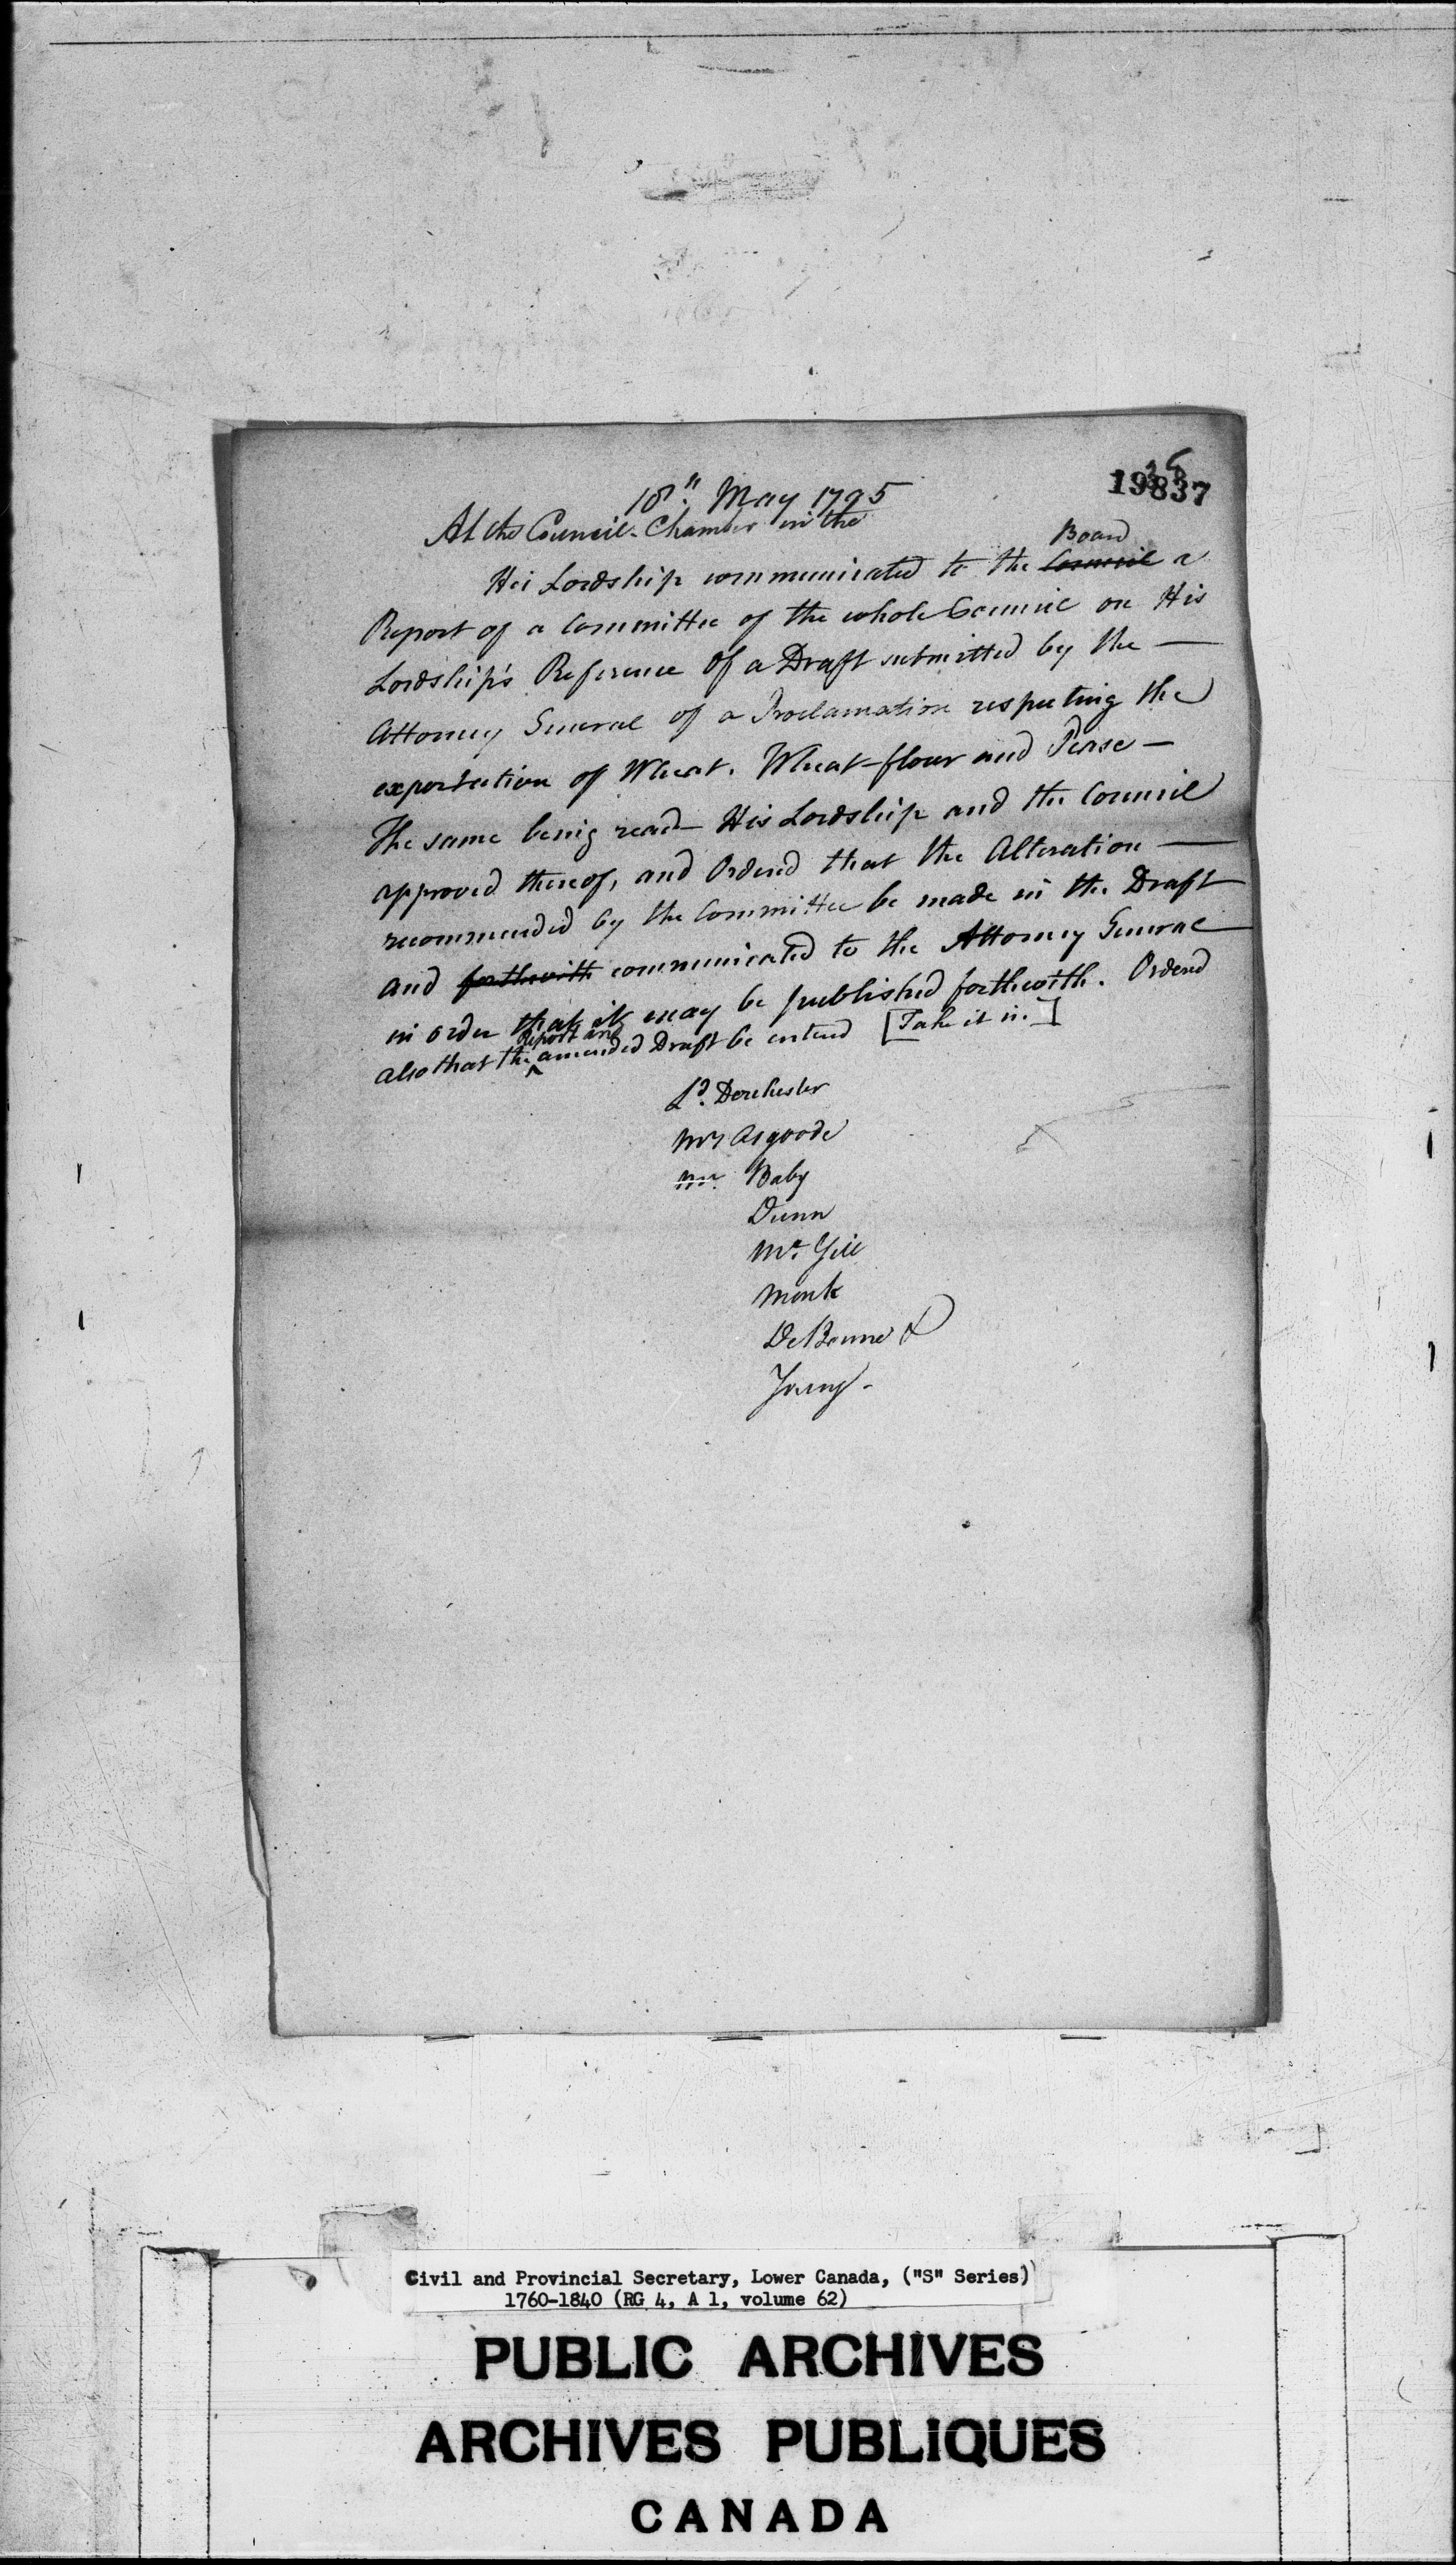 19837
18th. May 1795
At the Council-Chamber in the
Board
His Lordship communicated to the Council a
Report of a Committee of the whole Council on His
Lordship's Reference of a Draft submitted by the —
Attorney General of a Proclamation respecting the
exportation of Wheat. Wheat-flour and Pease —
The same being read — His Lordship and the Council
approved thereof, and Ordered that the Alteration —
recommended by the Committee be made in the Draft
and forthwith communicated to the Attorney General
in order that it may be published forthwith. Ordered
Report and
also that the ^ amended Draft be entered [Take it in.]
Ld. Dorchester
Mr Osgoode
Mr. Baby
Dunn
Mc. Gill
Monk
DeBonne &
Young -
Civil and Provincial Secretary, Lower Canada, ("S" Series)
1760-1840 (RG 4, A 1, volume 62)
PUBLIC ARCHIVES
ARCHIVES PUBLIQUES
CANADA